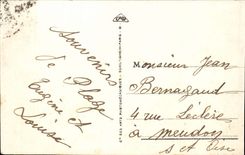 Souvenirs
de Plage
Eugène et
Louise
Monsieur Jean
Bernagaud
4 rue Leclère
à Meudon
S et Oise